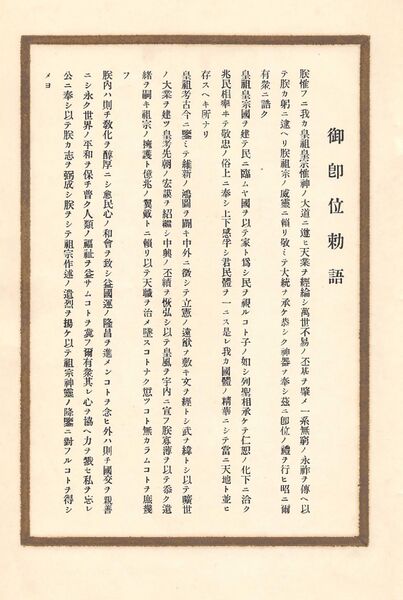 御卽位勅語
朕惟フニ我カ皇祖皇宗惟神ノ大道ニ遵ヒ天業ヲ經綸シ萬世不易ノ丕基ヲ肇メ一系無窮ノ永祚ヲ傳ヘ以
テ朕カ躬ニ逮ヘリ朕祖宗ノ威靈ニ賴リ敬ミテ大統ヲ承ケ恭シク神器ヲ奉シ茲ニ卽位ノ禮ヲ行ヒ昭ニ爾
有衆ニ誥ク
皇祖皇宗國ヲ建テ民ニ臨ムヤ國ヲ以テ家ト爲シ民ヲ視ルコト子ノ如シ列聖相承ケテ仁恕ノ化下ニ洽ク
兆民相率ヰテ敬忠ノ俗上ニ奉シ上下感孚シ君民體ヲ一ニス是レ我カ國體ノ精華ニシテ當ニ天地ト竝ヒ
存スヘキ所ナリ
皇祖考古今ニ鑒ミテ維新ノ鴻圖ヲ闢キ中外ニ徵シテ立憲ノ遠猷ヲ敷キ文ヲ經トシ武ヲ緯トシ以テ曠世
ノ大業ヲ建ツ皇考先朝ノ宏謨ヲ紹繼シ中興ノ丕績ヲ恢弘シ以テ皇風ヲ宇內ニ宣フ朕寡薄ヲ以テ忝ク遺
緖ヲ嗣キ祖宗ノ擁護ト億兆ノ翼戴トニ賴リ以テ天職ヲ治メ墜スコトナク愆ツコト無カラムコトヲ庶幾
フ
朕內ハ則チ敎化ヲ醇厚ニシ愈民心ノ和會ヲ致シ益國運ノ隆昌ヲ進メンコトヲ念ヒ外ハ則チ國交ヲ親善
ニシ永ク世界ノ平和ヲ保チ普ク人類ノ福祉ヲ益サムコトヲ冀フ爾有衆其レ心ヲ協ヘ力ヲ戮セ私ヲ忘レ
公ニ奉シ以テ朕カ志ヲ弼成シ朕ヲシテ祖宗作述ノ遺烈ヲ揚ケ以テ祖宗神靈ノ降鑒ニ對フルコトヲ得シ
メヨ